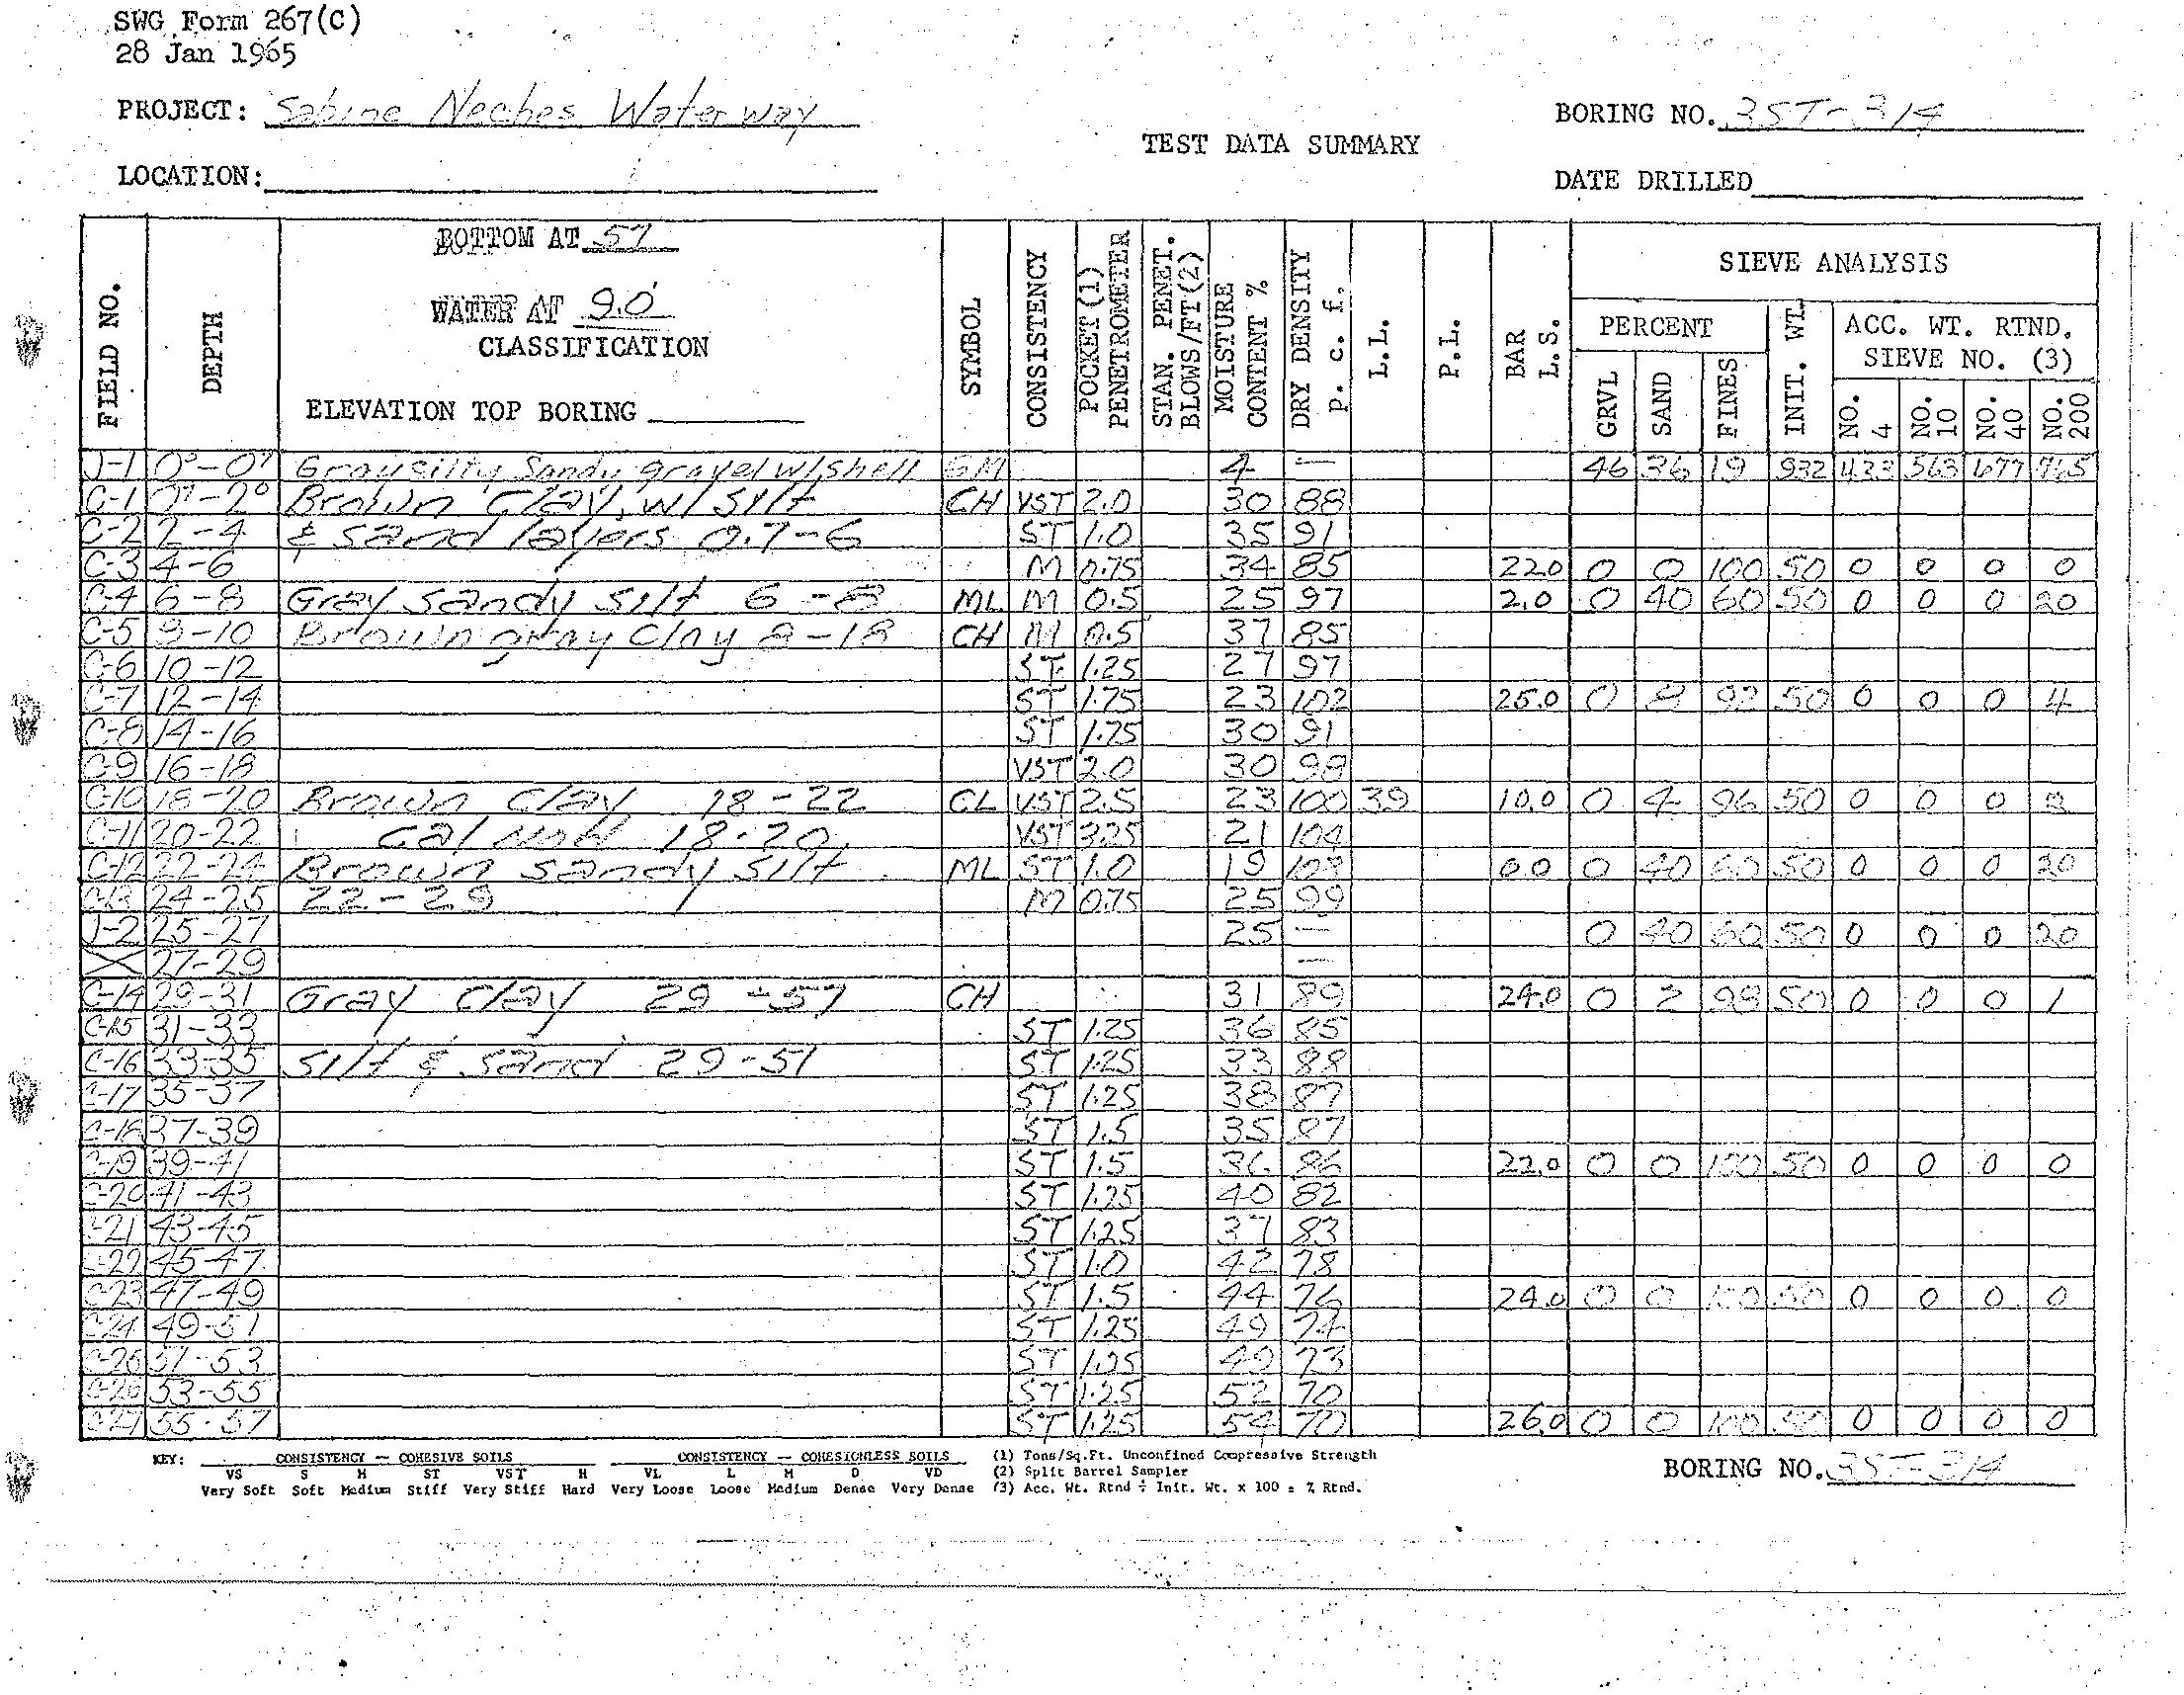 SWG Form 267(C)
28 Jan 1965
PROJECT: Sabine Neches Waterway
BORING NO. 3ST-314
TEST DATA SUMMARY
LOCATION:
DATE DRILLED
FIELD NO.
DEPTH
BOTTOM AT 57
WATER AT 9.0
CLASSIFICATION
ELEVATION TOP BORING
SYMBOL
CONSISTENCY
POCKET (1) PENETROMETER
STAN. PENET. BLOWS/FT(2)
MOISTURE CONTENT %
DRY DENSITY p. c. f.
L.L.
P.L.
BAR L.S.
SIEVE ANALYSIS
PERCENT
GRVL
SAND
FINES
INIT. WT.
ACC. WT. RTND.
SIEVE NO. (3)
NO. 4
NO. 10
NO. 40
NO. 200
J-1 0⁰-0⁷ Gray silty Sandy gravel w/shell GM 4 — 46 36 19 932 423 563 677
C-1 0⁷-2⁰ Brown Clay, w/ silt CH VST 2.0 30 88
C-2 2-4 & sand layers 0.7-6 ST 1.0 35 91
C-3 4-6 M 0.75 34 85 22.0 0 0 100 50 0 0 0 0
C-4 6-8 Gray sandy silt 6-8 ML M 0.5 25 97 2.0 0 40 60 50 0 0 0 20
C-5 8-10 Brown gray Clay 8-18 CH M 0.5 37 85
C-6 10-12 ST 1.25 27 97
C-7 12-14 ST 1.75 23 102 25.0 0 8 92 50 0 0 0 4
C-8 14-16 ST 1.75 30 91
C-9 16-18 VST 2.0 30 98
C-10 18-20 Brown Clay 18-22 CL VST 2.5 23 100 39 10.0 0 4 96 50 0 0 0 2
C-11 20-22 cal nod 18-20 VST 3.25 21 104
C-12 22-24 Brown sandy silt ML ST 1.0 19 108 0.0 0 40 60 50 0 0 0 20
C-13 24-25 22-29 M 0.75 25 99
J-2 25-27 25 — 0 40 60 50 0 0 0 20
X 27-29 —
C-14 29-31 Gray Clay 29-57 CH 31 89 24.0 0 2 98 50 0 0 0 1
C-15 31-33 ST 1.25 36 85
C-16 33-35 silt & sand 29-51 ST 1.25 33 88
C-17 35-37 ST 1.25 38 87
C-18 37-39 ST 1.5 35 87
C-19 39-41 ST 1.5 36 86 22.0 0 0 100 50 0 0 0 0
C-20 41-43 ST 1.25 40 82
C-21 43-45 ST 1.25 37 83
C-22 45-47 ST 1.0 42 78
C-23 47-49 ST 1.5 44 76 24.0 0 0 100 50 0 0 0 0
C-24 49-51 ST 1.25 49 74
51-53 ST 1.25 49 73
C-26 53-55 ST 1.25 52 70
C-27 55-57 ST 1.25 54 70 26.0 0 0 100 50 0 0 0 0
KEY: CONSISTENCY — COHESIVE SOILS CONSISTENCY — COHESIONLESS SOILS (1) Tons/Sq.Ft. Unconfined Compressive Strength
VS S M ST VST H VL L M D VD (2) Split Barrel Sampler
Very Soft Soft Medium Stiff Very Stiff Hard Very Loose Loose Medium Dense Very Dense (3) Acc. Wt. Rtnd ÷ Init. Wt. x 100 = % Rtnd.
BORING NO. 3ST-314